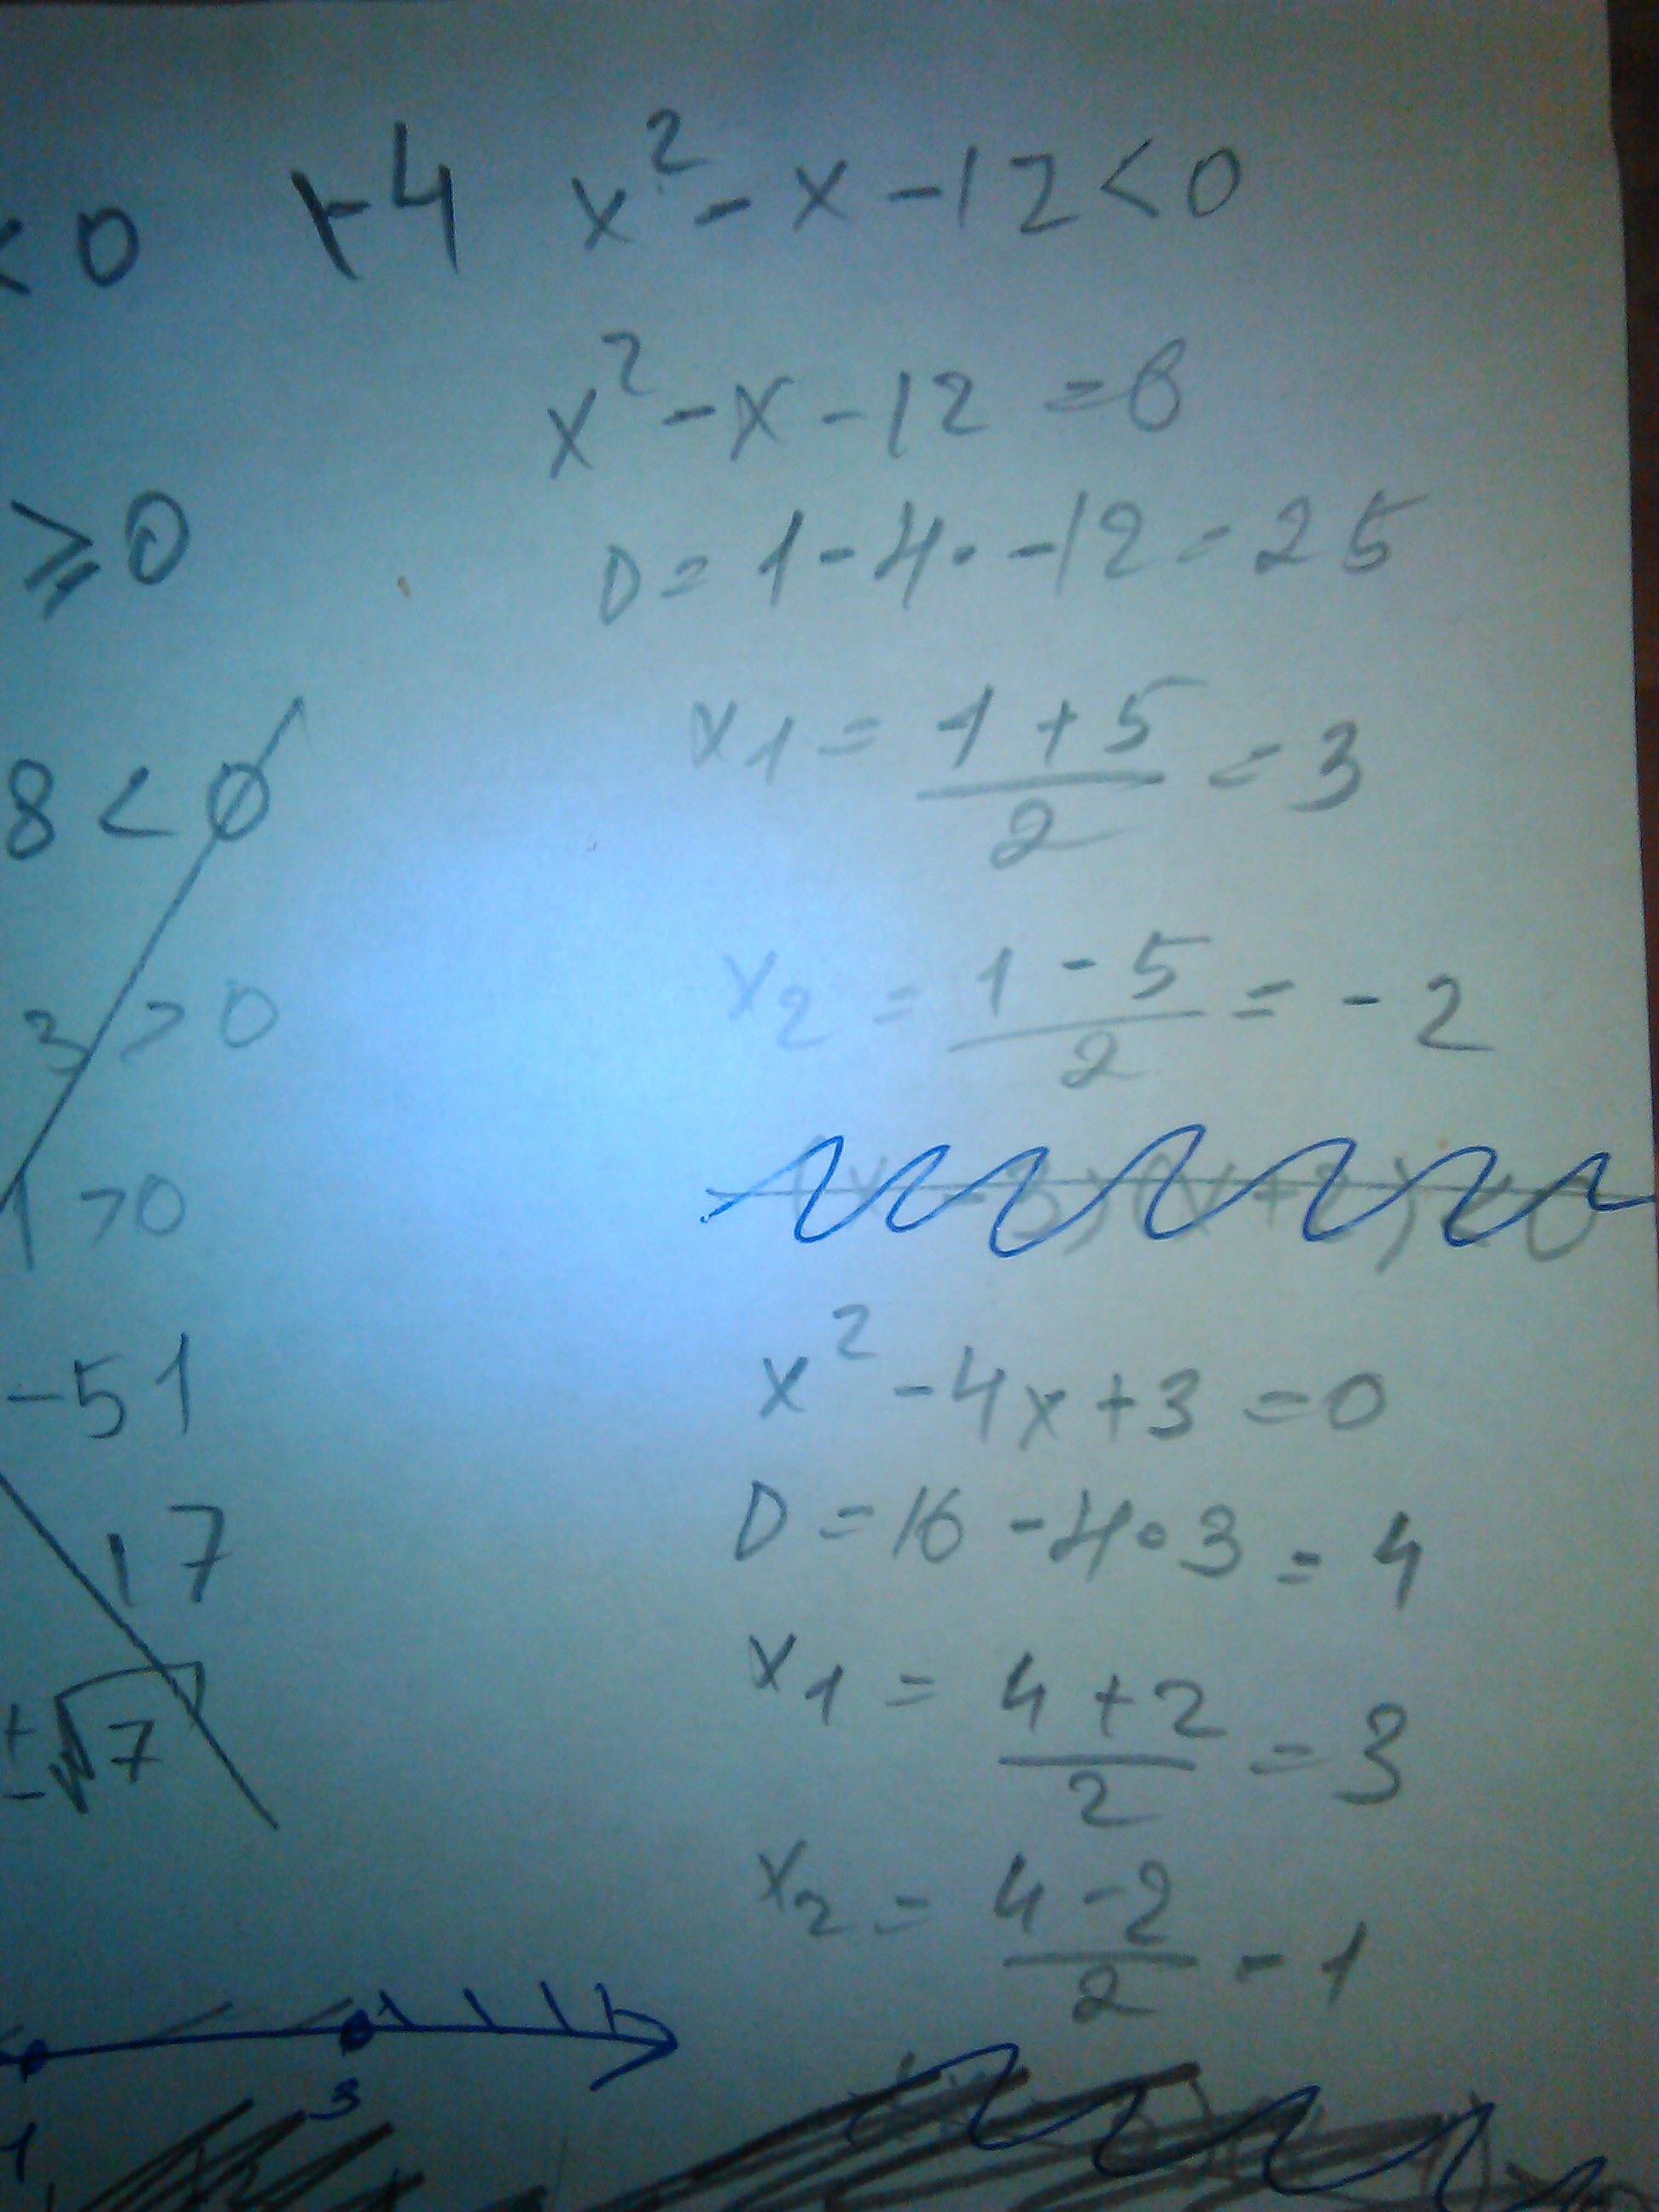 < 0 +4 x² - x - 12 < 0
x² - x - 12 = 0
≥ 0
D = 1 - 4 · -12 = 25
x1 = (1 + 5)/2 = 3
8 < 0
x2 = (1 - 5)/2 = -2
3 > 0
1 > 0
x² - 4x + 3 = 0
-51
D = 16 - 4 · 3 = 4
17
x1 = (4 + 2)/2 = 3
±√7
x2 = (4 - 2)/2 - 1
3
1